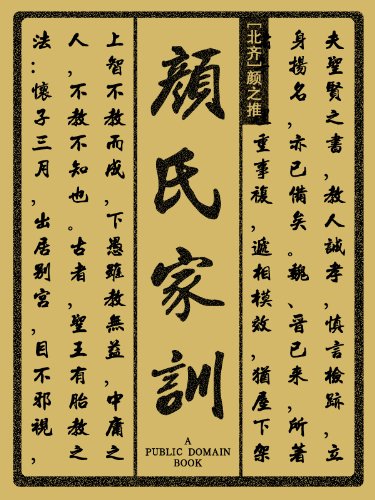 夫聖賢之書，教人誠孝，慎言檢跡，立
身揚名，亦已備矣。魏、晉已來，所著
重事複，遞相模效，猶屋下架
[北齐] 颜之推
顏氏家訓
A
PUBLIC DOMAIN
BOOK
上智不教而成，下愚雖教無益，中庸之
人，不教不知也。古者，聖王有胎教之
法：懷子三月，出居别宮，目不邪視，